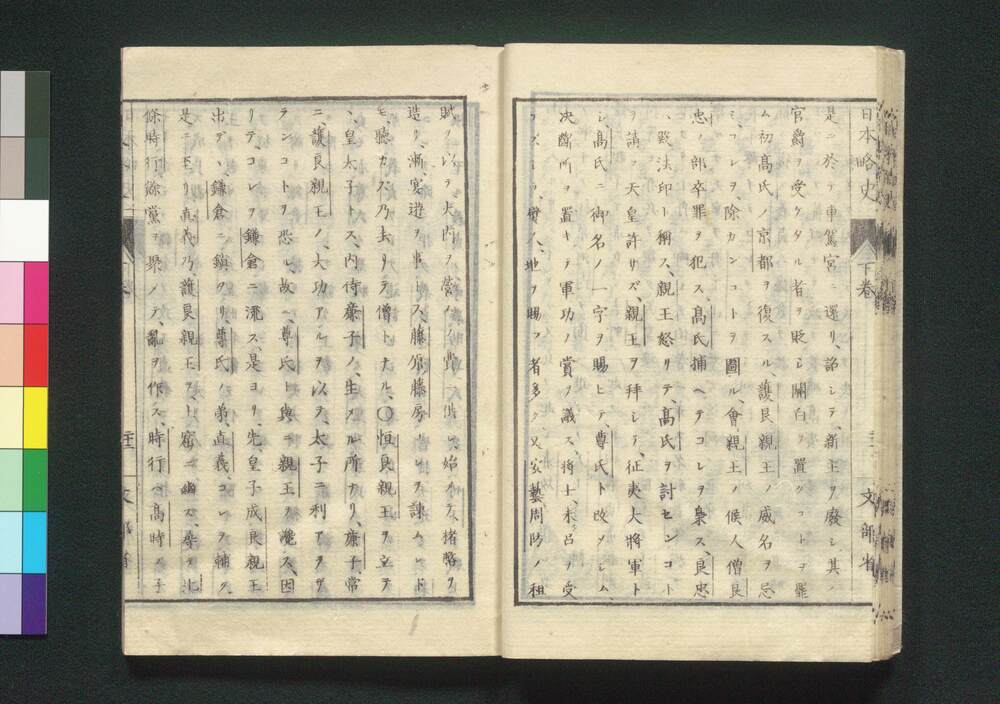 日本略史 下卷 二十二 文部省
是ニ於テ車駕宮ニ還リ、詔シテ、新主ヲ廢シ其ノ
官爵ヲ受ケタル者ヲ貶シ關白ヲ置クコトヲ罷
ム初高氏ノ京都ヲ復スル、護良親王ノ威名ヲ忌
ミコレヲ除カンコトヲ圖ル、會親王ノ候人僧良
忠ノ部卒罪ヲ犯ス、高氏捕ヘテコレヲ梟ス、良忠
ハ殿法印ト稱ス、親王怒リテ、高氏ヲ討センコト
ヲ請フ天皇許サズ、親王ヲ拜シテ、征夷大將軍ト
シ高氏ニ御名ノ一字ヲ賜ヒテ、尊氏ト改メシム、
决斷所ヲ置キテ軍功ノ賞ヲ議ス、將士、未ダ呂ヲ受
ケズシテ、地ヲ賜フ者多ク、又安藝周防ノ租
賦ヲ以テ大内ヲ營ノ費ニ供シ、始メテ、楮幣ヲ
造リ、漸、宴遊ヲ事トス、藤原藤房コレヲ諫ムレド
モ聽カズ乃去リテ僧トナル、〇恒良親王ヲ立テ
、皇太子トス、内侍廉子ノ、生メル所ナリ、廉子、常
ニ、護良親王ノ、大功アルヲ以テ、太子ニ利アラザ
ランコトヲ恐ル、故ニ尊氏ト與ニ親王ヲ讒ス、因
リテ、コレヲ鎌倉ニ流ス、是ヨリ、先、皇子成良親王
出デヽ、鎌倉ニ鎭タリ、尊氏ノ、弟、直義、コレヲ輔ク、
是ニ至リ直義乃護良親王ヲ、ト窟ニ幽ス、尋デ北
條時行、餘黨ヲ聚メテ、亂ヲ作ス、時行ハ、高時ノ子